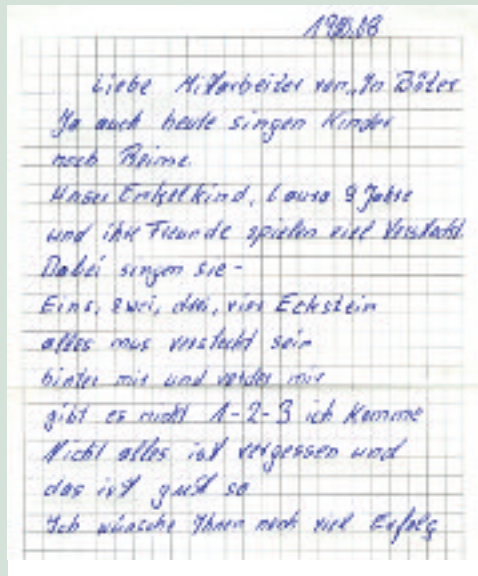 Liebe Mitarbeiter von „In
Ja auch heute singen Kinder
noch Reime.
Unser Enkelkind, Laura 9 Jahre
und ihre Freunde spielen viel Versteckt.
Dabei singen sie -
Eins, zwei, drei, vier Eckstein
alles mus versteckt sein
hinter mir und vorder mir
gibt es nicht 1-2-3 ich komme
Nicht alles ist vergessen und
das ist gut so
Ich wünsche Ihnen noch viel Erfolg